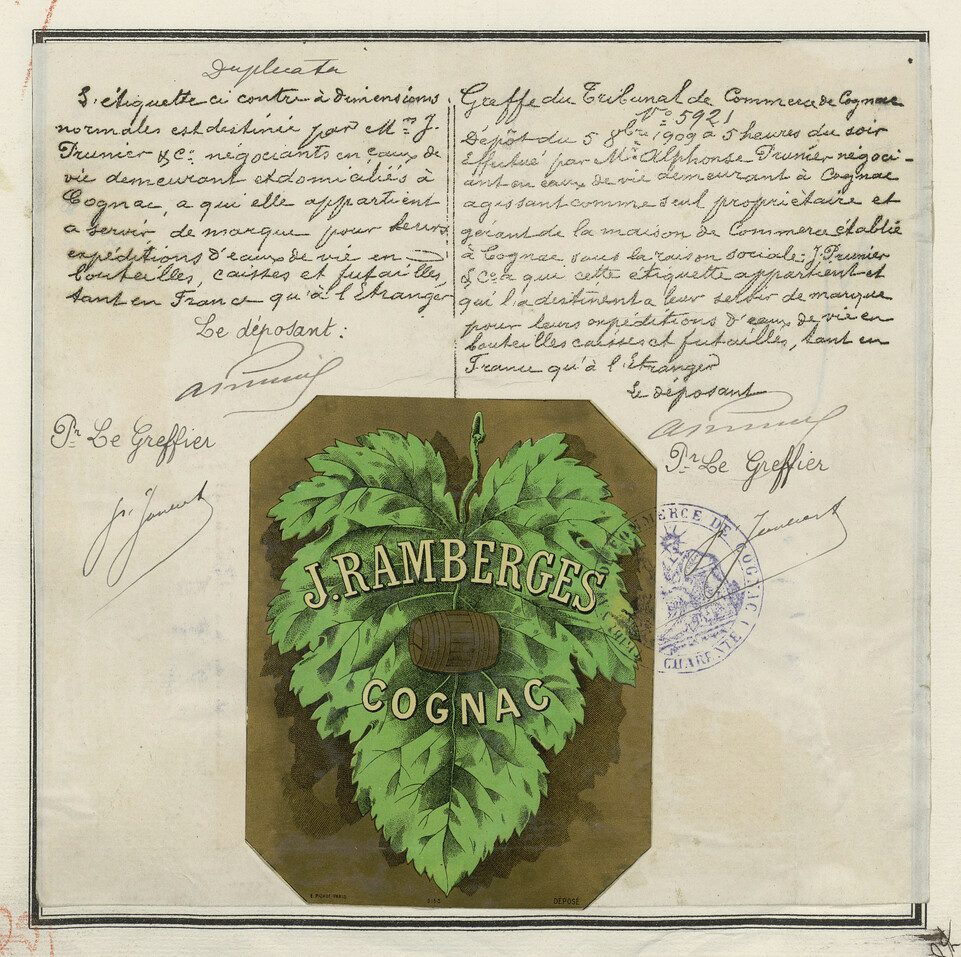 Duplicata
L'étiquette ci contre à dimensions
normales est destinée par Mm J.
Prunier & Co. négociants en eaux de
vie demeurant et domiciliés à
Cognac, a qui elle appartient
a servir de marque pour leurs
expéditions d'eaux de vie en
bouteilles, caisses et futailles,
tant en France qu'à l'Etranger
Le déposant:
Pr Le Greffier
Greffe du Tribunal de Commerce de Cognac
No 5921
Dépôt du 5 8bre 1909 à 5 heures du soir
Effectué par Mr Alphonse Prunier négoci-
ant en eaux de vie demeurant à Cognac
agissant comme seul propriétaire et
gérant de la maison de Commerce établie
à Cognac sous la raison sociale: J. Prunier
& Co à qui cette étiquette appartient et
qui l'a destinent a leur servir de marque
pour leurs expéditions d'eaux de vie en
bouteilles caisses et futailles, tant en
France qu'à l'Etranger
Le déposant
Pr Le Greffier
J. RAMBERGES
COGNAC
DÉPOSÉ
COMMERCE DE COGNAC
CHARENTE